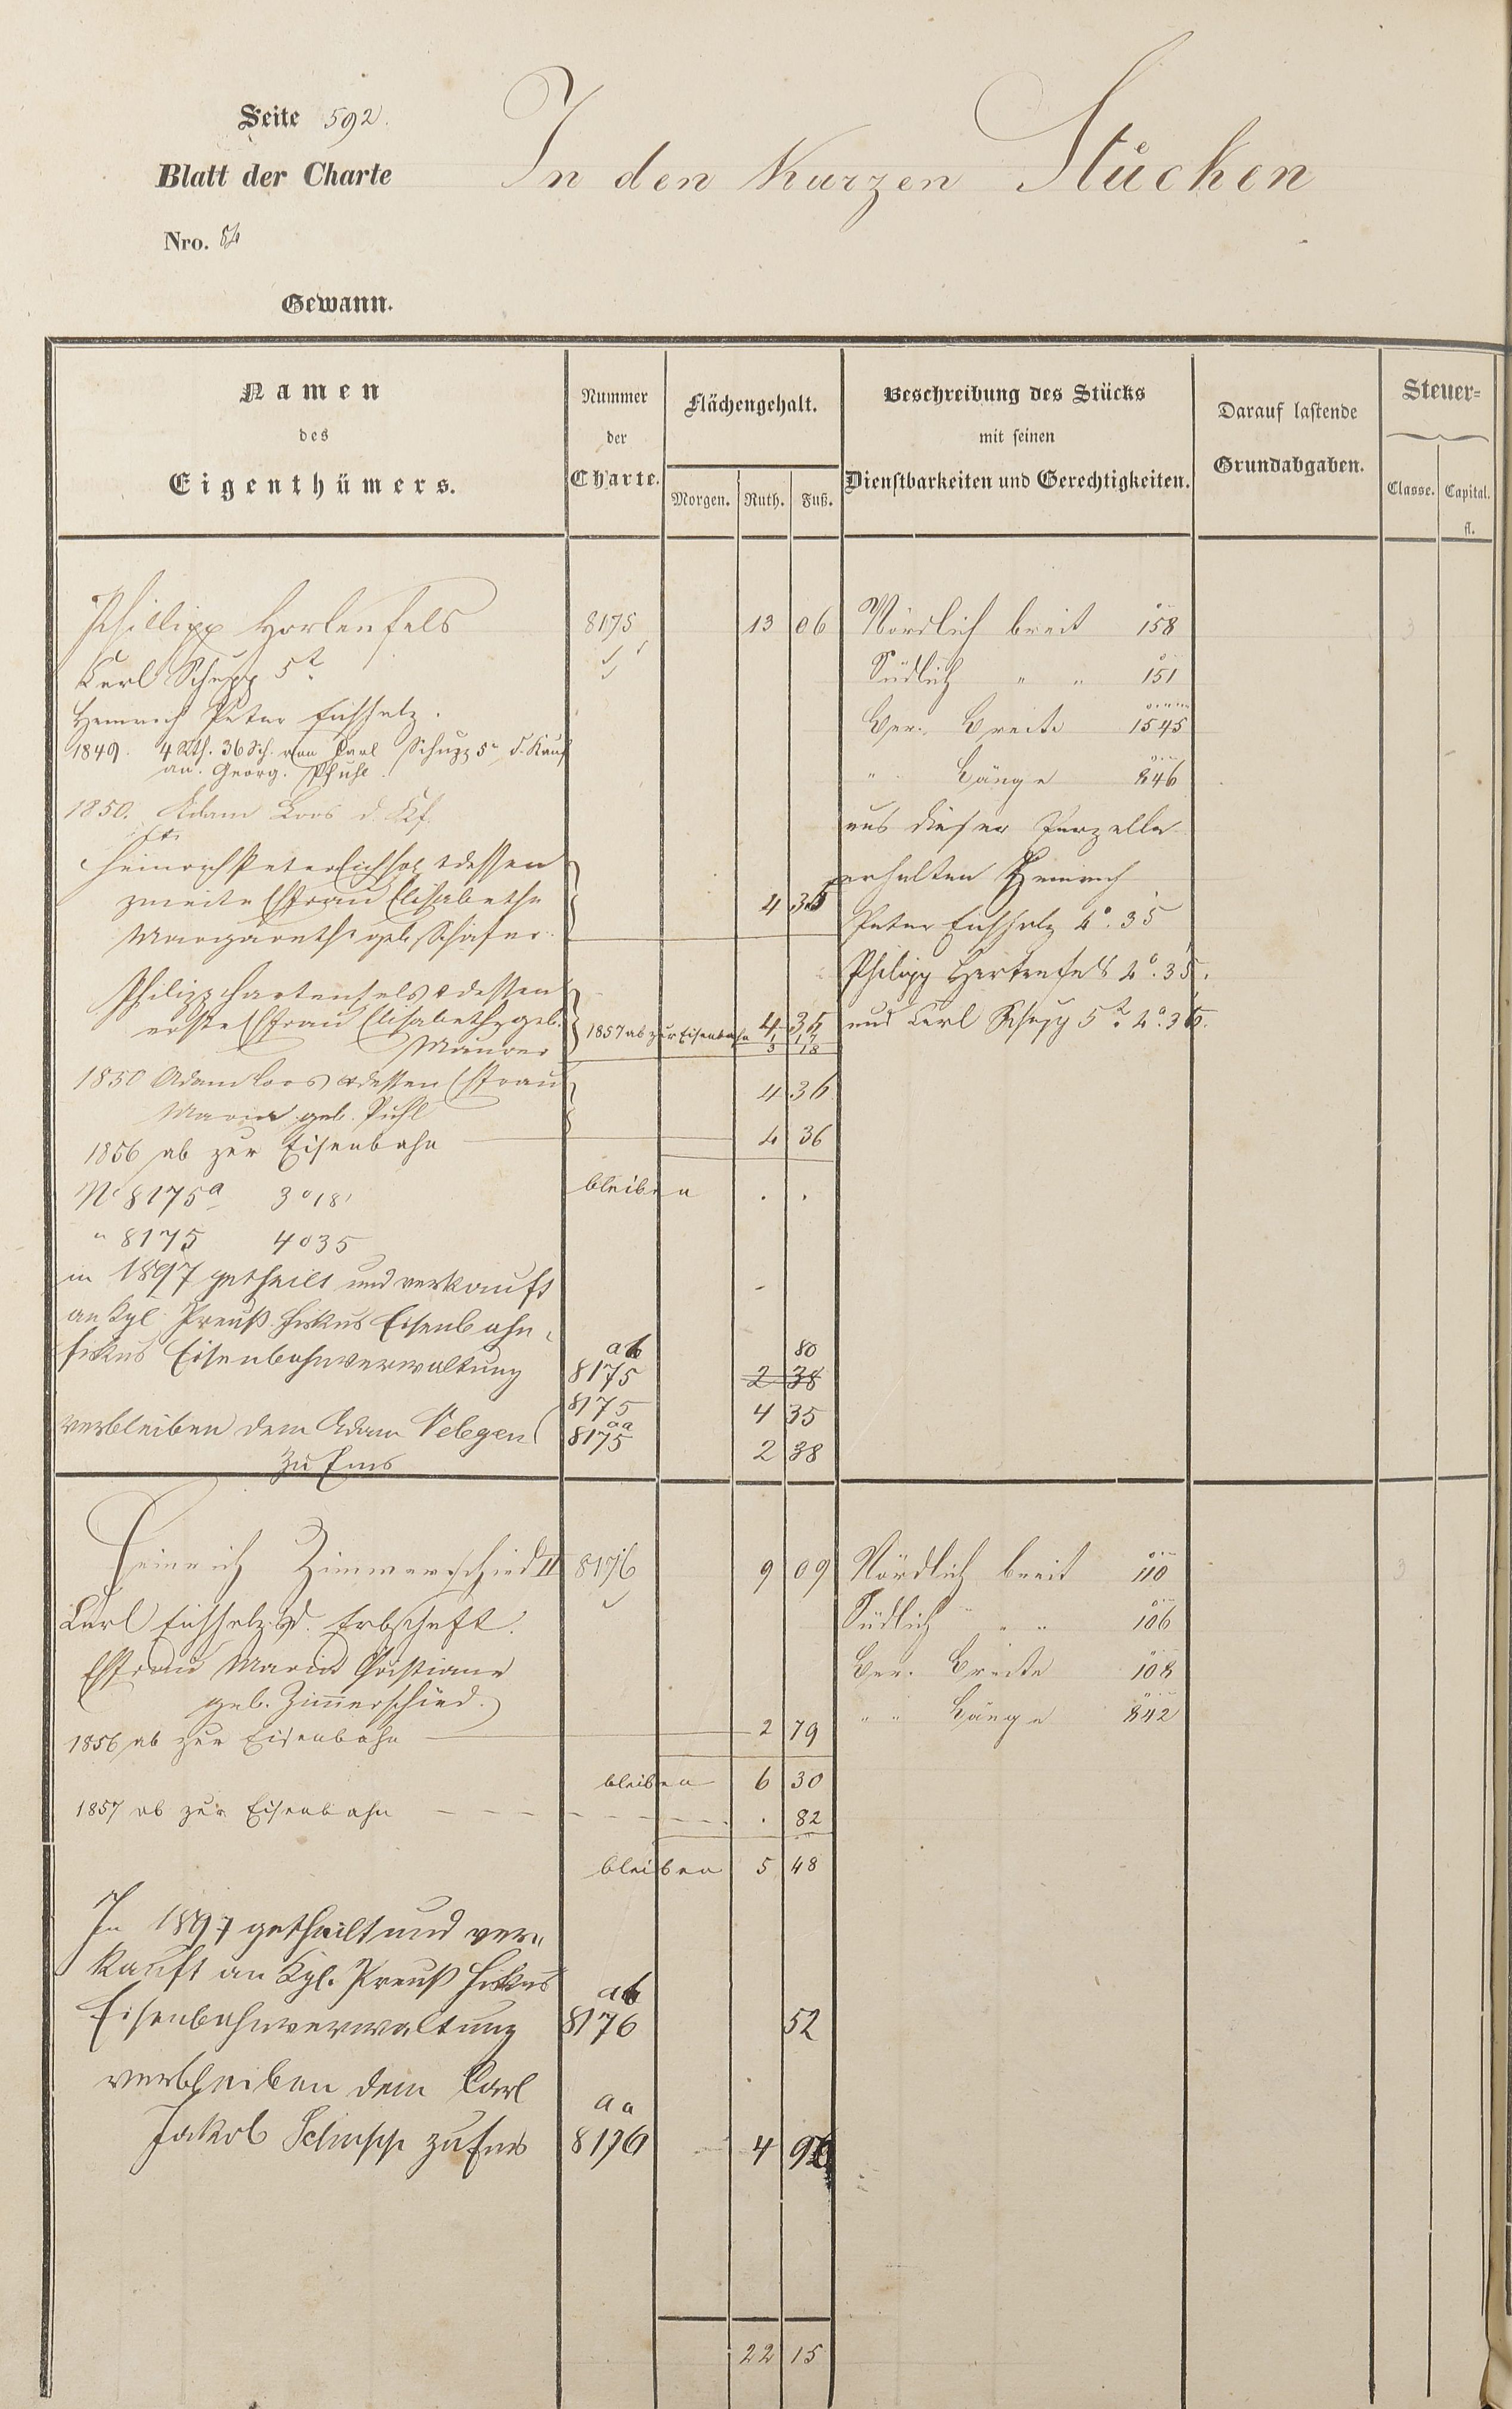 Seite 592.
Blatt der Charte
Nro. 84
Gewann.
In den Kurzen Stücken
Namen
des
Eigenthümers.
Nummer
der
Charte.
Flächengehalt.
Morgen. Ruth. Fuß.
Beschreibung des Stücks
mit seinen
Dienstbarkeiten und Gerechtigkeiten.
Darauf lastende
Grundabgaben.
Steuer-
Classe. Capital.
fl.
Philipp Hartenfels 8175 13 06 Nördlich breit 158
Carl Schupp 5t. Südlich " " 151
Heinrich Peter Eichholz. Ber. Breite 1545
1849. 4 Rth. 36 Sch. von Carl Schupp 5t d. Kauf
an Georg Pfuhl " Länge 846
1850. Adam Loos d. Kf. aus dieser Parzelle
Heinrich Peter Eichholz & dessen erhalten Heinrich
zweite Ehfrau Elisabethe 4 35 Peter Eichholz 4° 35'
Margarethe geb. Schäfer Philipp Hartenfels 4° 35'.
Philipp Hartenfels & dessen
erste Ehfrau Elisabethe geb. 1857 ab zur Eisenbahn 4 35 und Carl Schupp 5t 4° 36'.
Maurer 1 17
3 18
1850 Adam Loos & dessen Ehfrau 4 36
Maria geb. Pfuhl
1856 ab zur Eisenbahn 4 36
bleiben . .
No 8175a 3° 18'
" 8175 4° 35
in 1897 getheilt und verkauft
an Kgl. Preuß. Fiskus Eisenbahn-
fiskus Eisenbahnverwaltung ab 8175 80
2 38
8175 4 35
verbleiben dem Adam Velegen aa 8175 2 38
zu Ems
Heinrich Zimmerschied II 8176 9 09 Nördlich breit 110
Carl Eichholz d. Erbschaft. Südlich " " 106
Ehfrau Maria Christiane Ber. Breite 108
geb. Zimmerschied. " " Länge 842
1856 ab zur Eisenbahn 2 79
bleiben 6 30
1857 ab zur Eisenbahn . 82
bleiben 5 48
In 1897 getheilt und ver-
kauft an Kgl. Preuß Fiskus
Eisenbahnverwaltung ab 8176 52
verbleiben dem Carl
Jakob Schupp zu Ems aa 8176 4 96
22 15